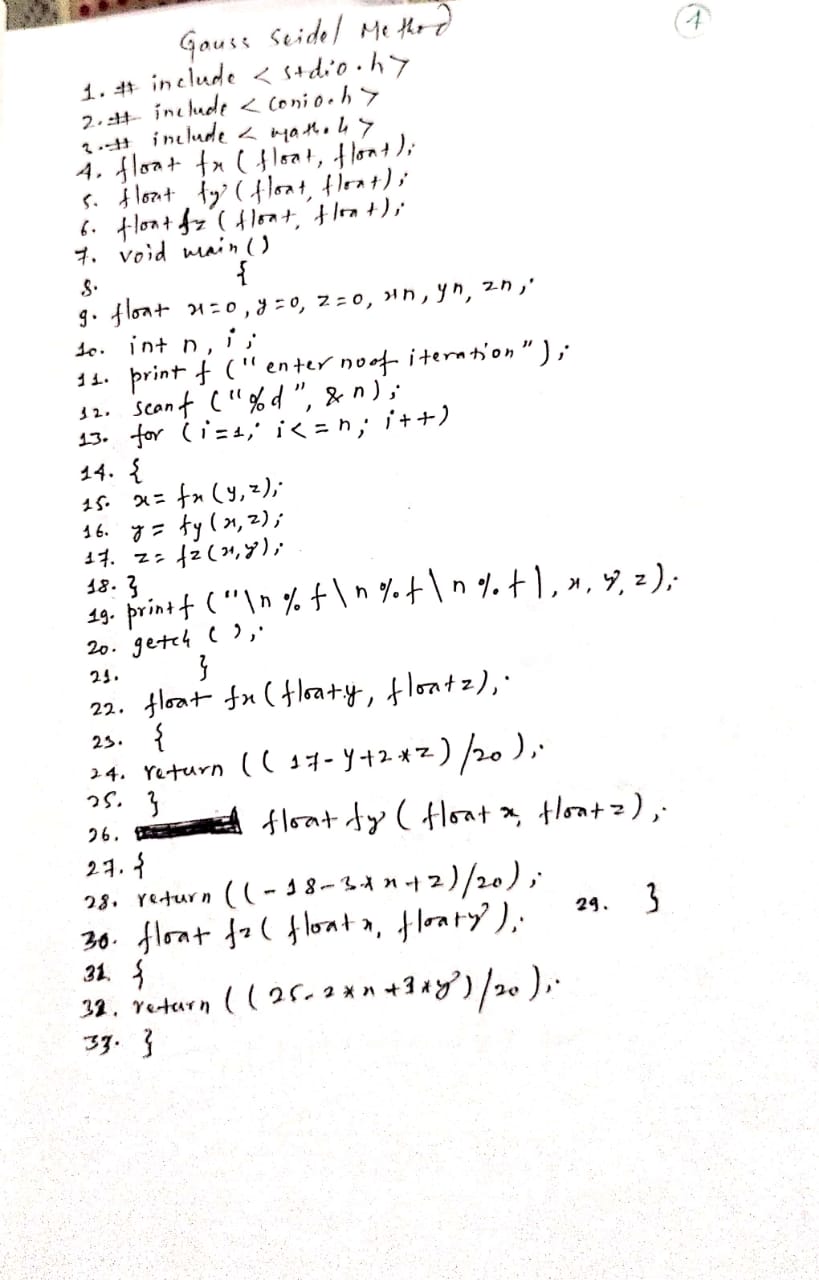 Gauss Seidel Method
1
1. # include < stdio.h >
2. # include < conio.h >
3. # include < math.h >
4. float fx ( float, float );
5. float fy ( float, float );
6. float fz ( float, float );
7. void main ()
8. {
9. float x=0, y=0, z=0, xn, yn, zn;
10. int n, i;
11. printf ("enter no of iteration");
12. scanf ("%d", &n);
13. for (i=1; i<=n; i++)
14. {
15. x= fx (y,z);
16. y= fy (x,z);
17. z= fz (x,y);
18. }
19. printf ("\n %f \n %f \n %f ), x, y, z);
20. getch ();
21. }
22. float fx (float y, float z);
23. {
24. return (( 17-y+2*z) /20 );
25. }
26. float fy ( float x, float z);
27. {
28. return ((-18-3*x+z)/20);
29. }
30. float fz ( float x, float y );
31. {
32. return ((25-2*x+3*y)/20);
33. }